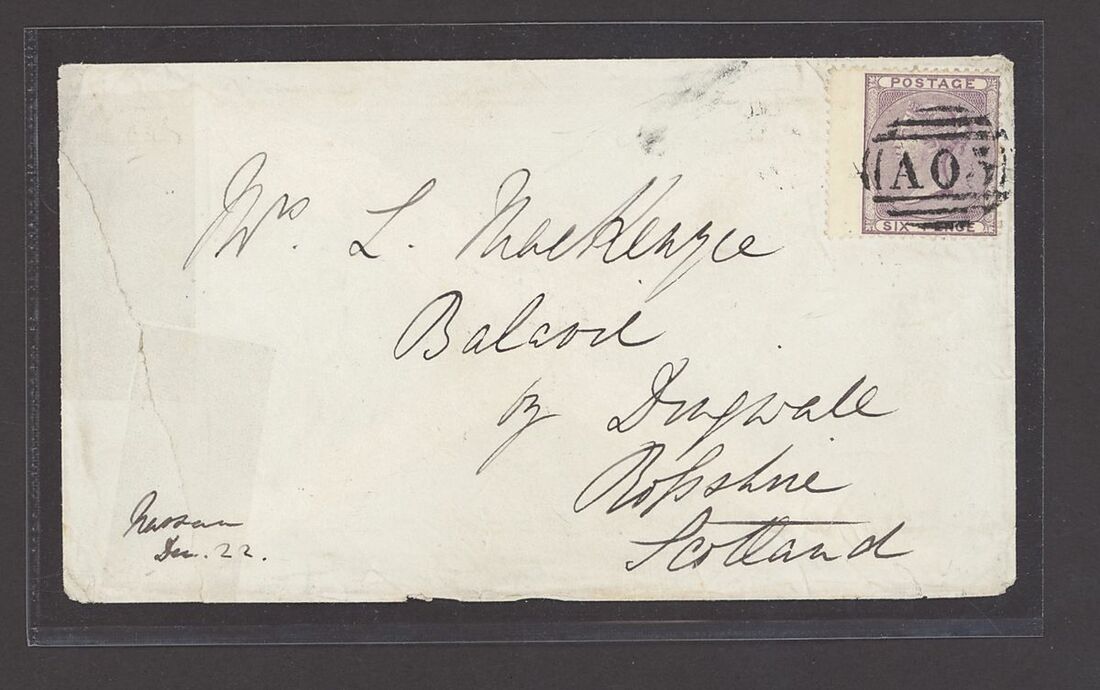 POSTAGE
A05
SIX PENCE
Mrs. L. MacKenzie
Balavil
by Dingwall
Rossshire
Scotland
Nassau
Dec. 22.